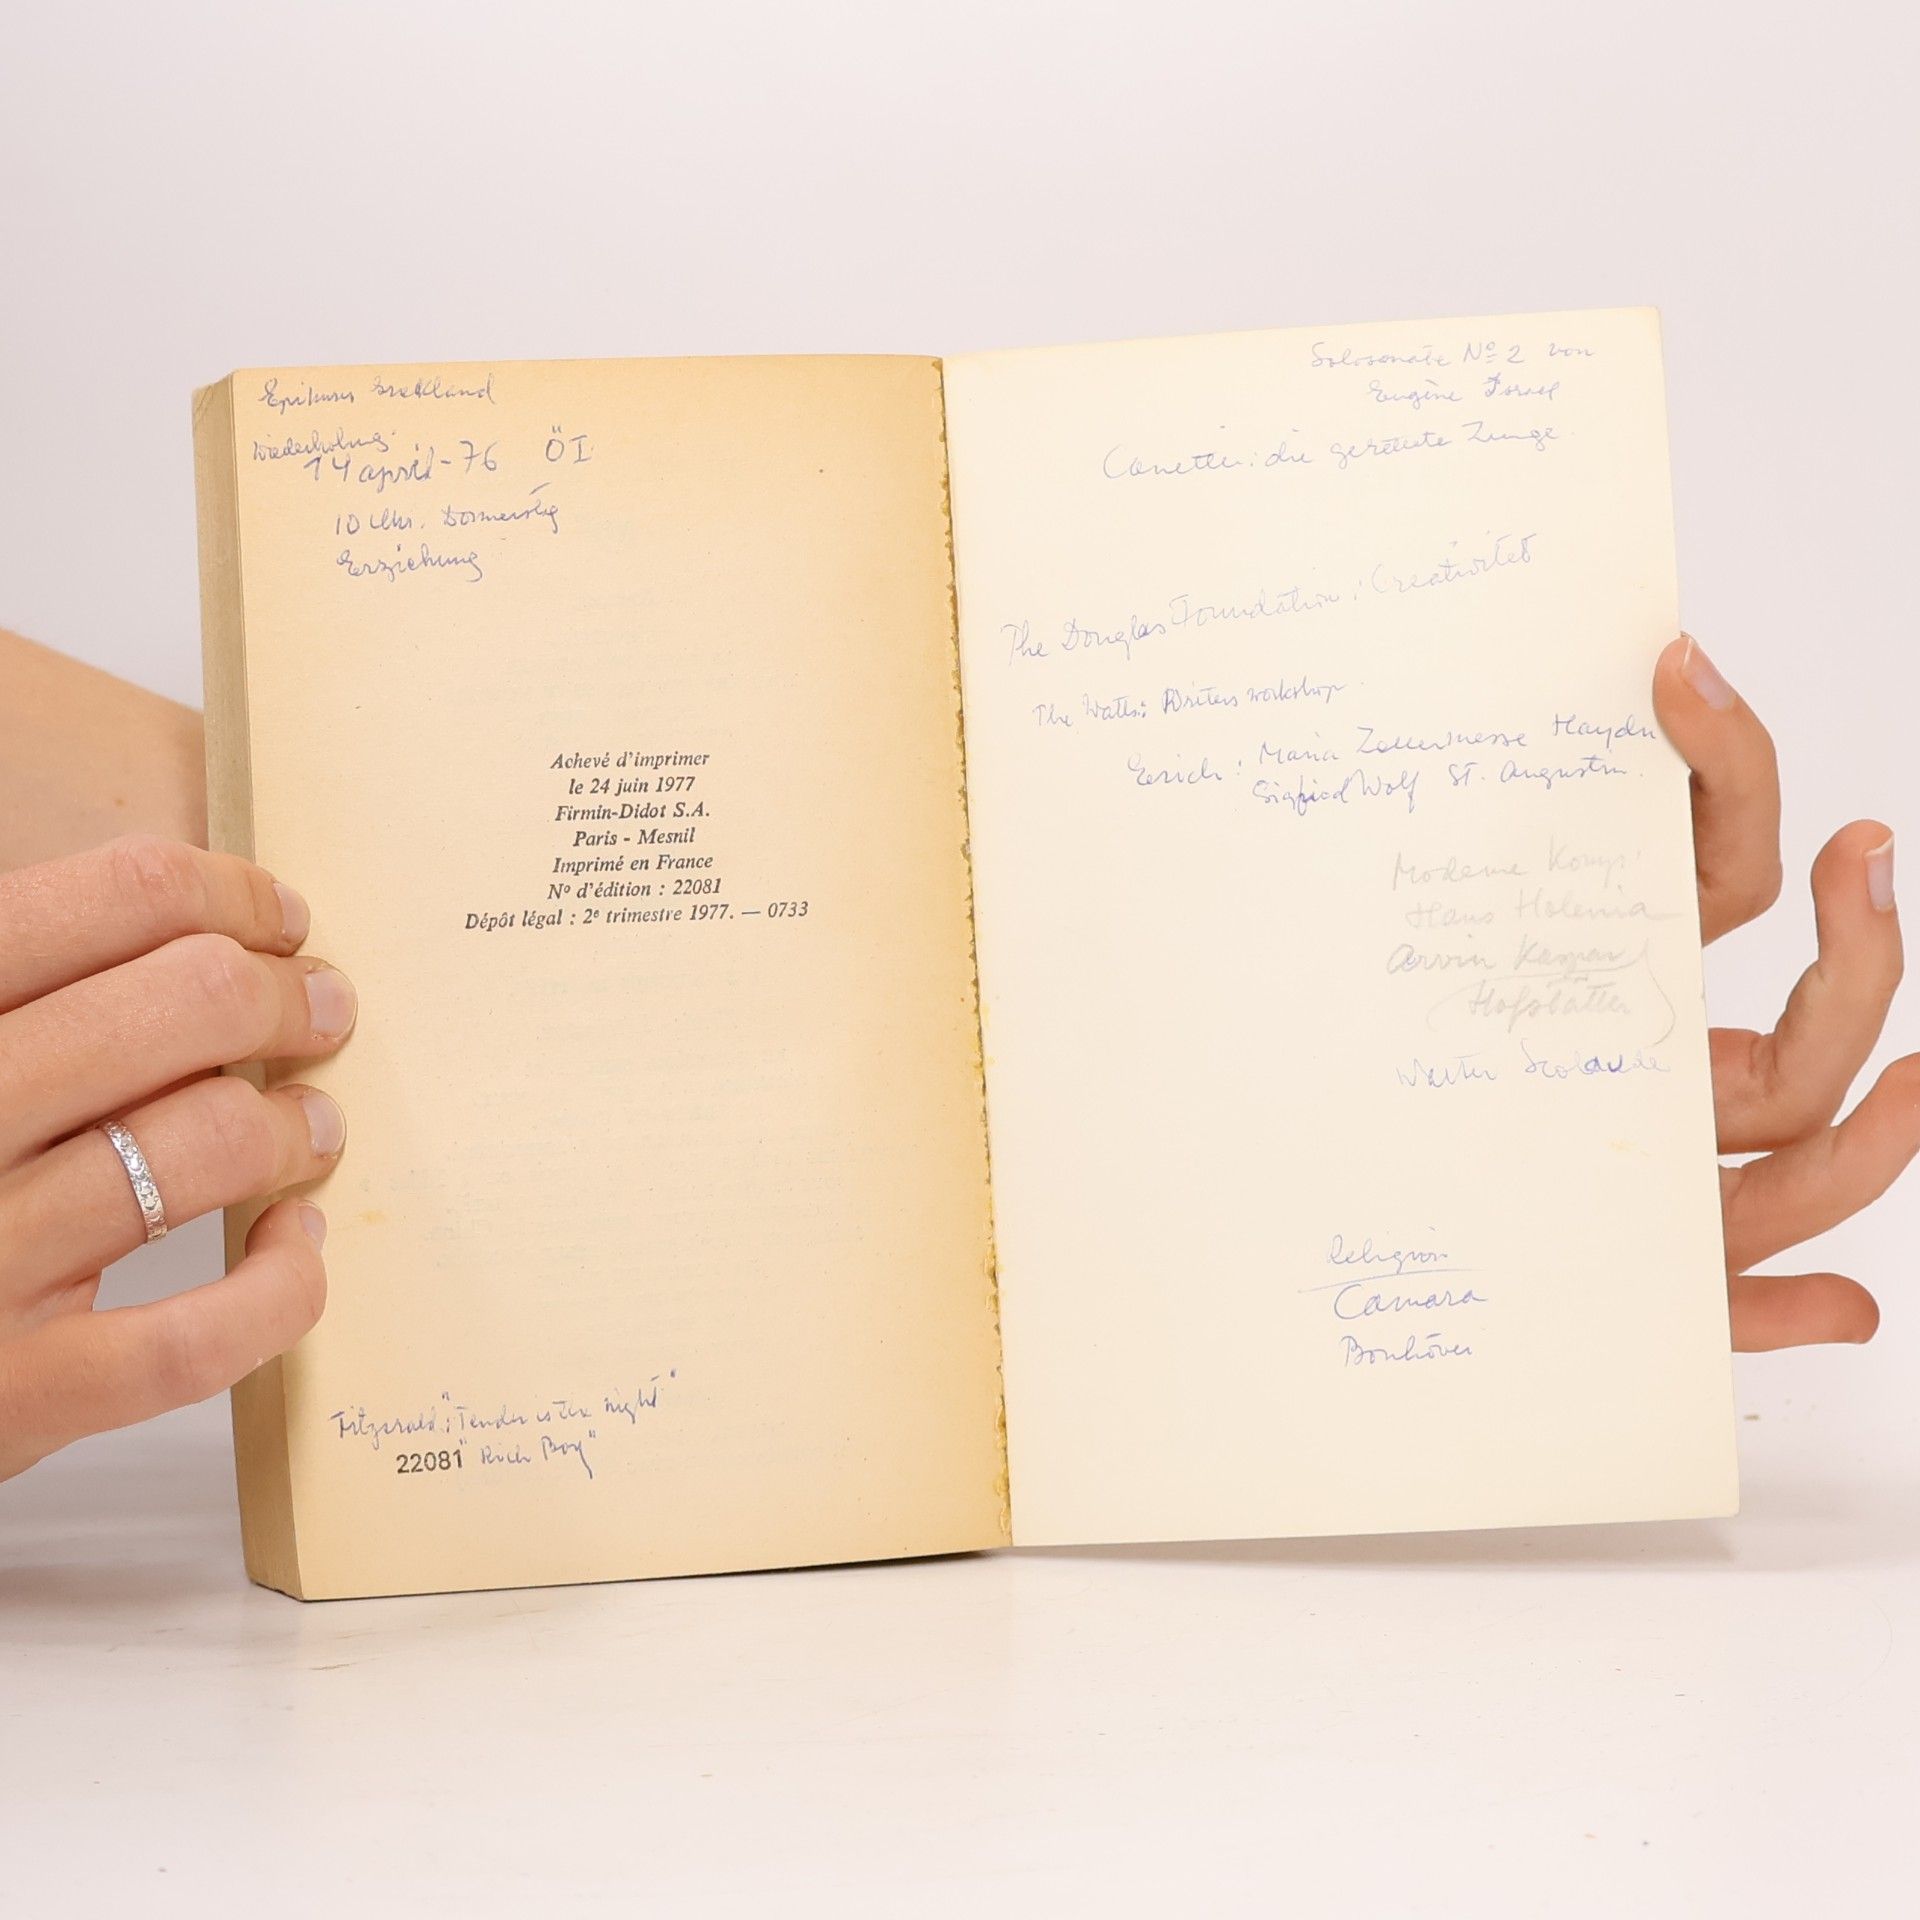 Epikurs
Wiederholung:
14 april - 76 ÖI.
10 Uhr. Donnerstg
Erziehung
Achevé d'imprimer
le 24 juin 1977
Firmin-Didot S.A.
Paris - Mesnil
Imprimé en France
Nº d'édition : 22081
Dépôt légal : 2e trimestre 1977. — 0733
Fitzgerald: "Tender is the night"
22081 "Rich Boy"
Solosonate Nº 2 von
Eugène
Canetti: die gerettete Zunge.
The Douglas Foundation: Creativität
The Watts: Writers workshop.
Erich: Maria Zellermesse Haydn
Sigfried Wolf St. Augustin.
Moderne Komp.
Hans Holenia
Hofstätter
Walter
Religion
Camara
Bonhöver